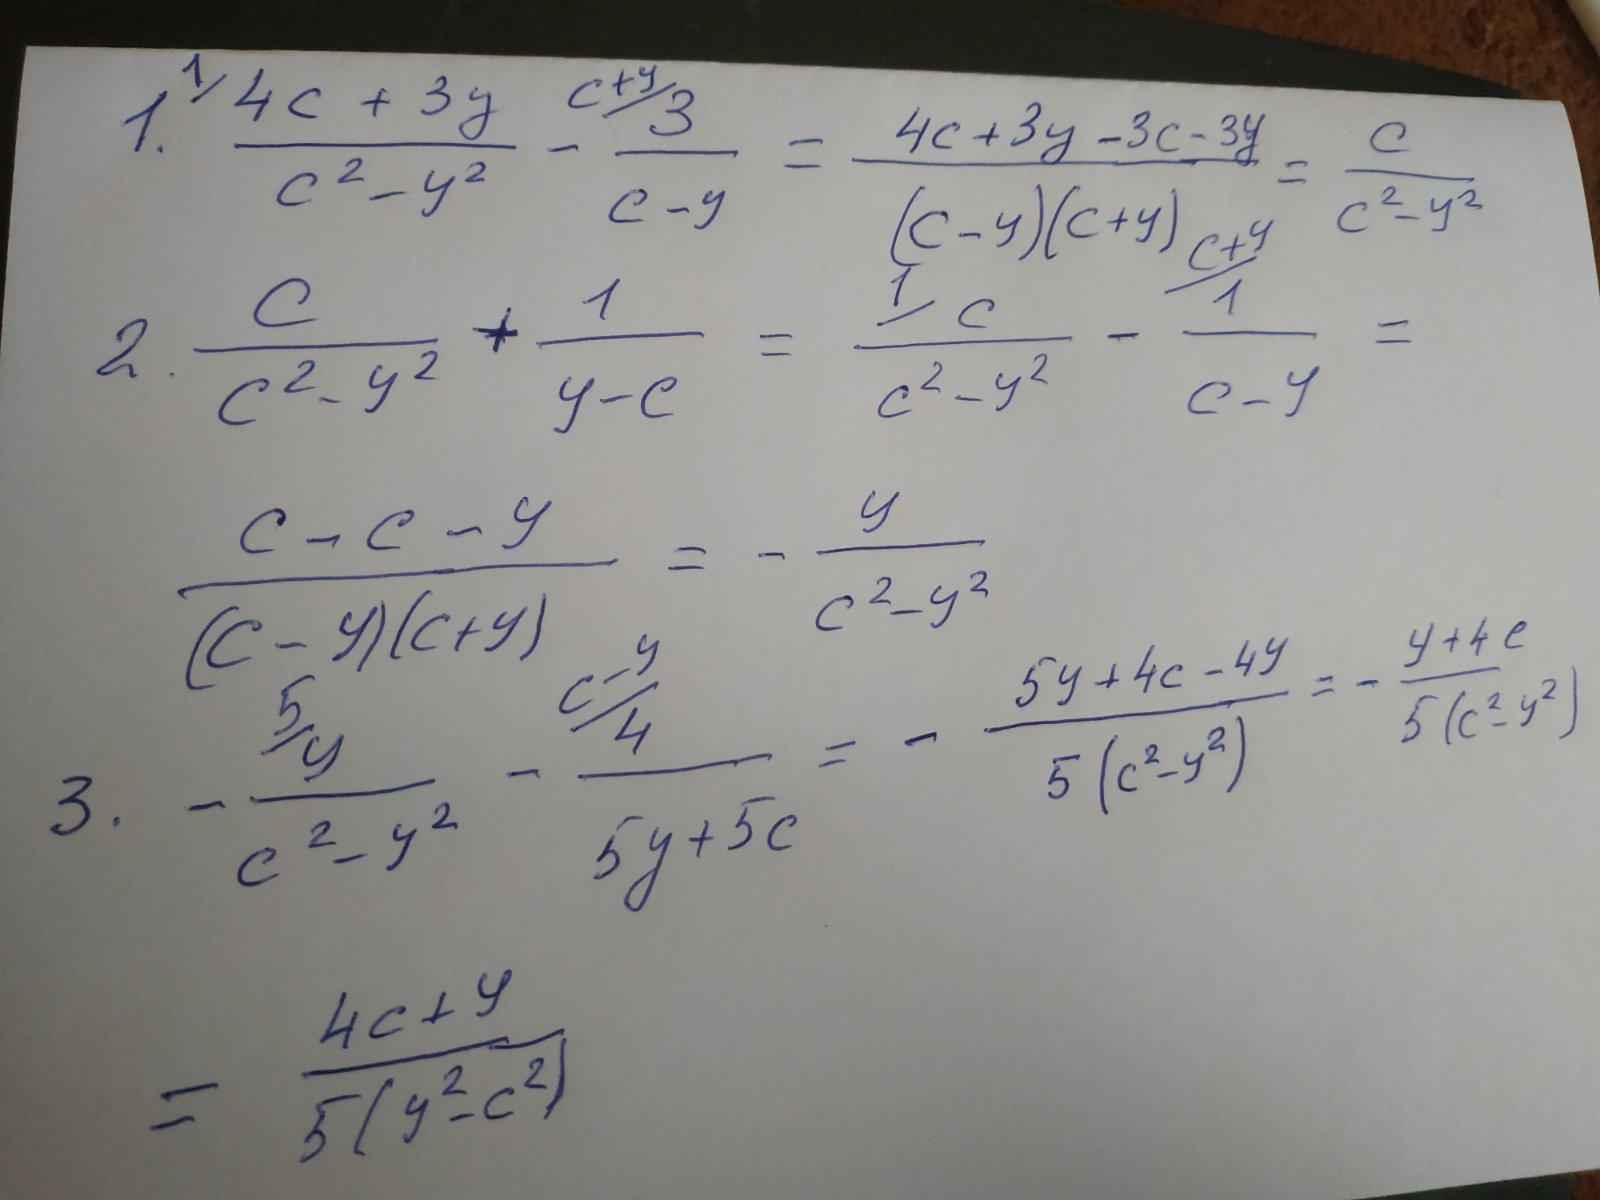 1. 1/ (4c + 3y)/(c² - y²) - c+y/ 3/(c - y) = (4c + 3y - 3c - 3y)/((c - y)(c + y)) = c/(c² - y²)
2. c/(c² - y²) + 1/(y - c) = 1/ c/(c² - y²) - c+y/ 1/(c - y) =
(c - c - y)/((c - y)(c + y)) = - y/(c² - y²)
3. - 5/ y/(c² - y²) - c-y/ 4/(5y + 5c) = - (5y + 4c - 4y)/(5(c² - y²)) = - (y + 4c)/(5(c² - y²))
= (4c + y)/(5(y² - c²))